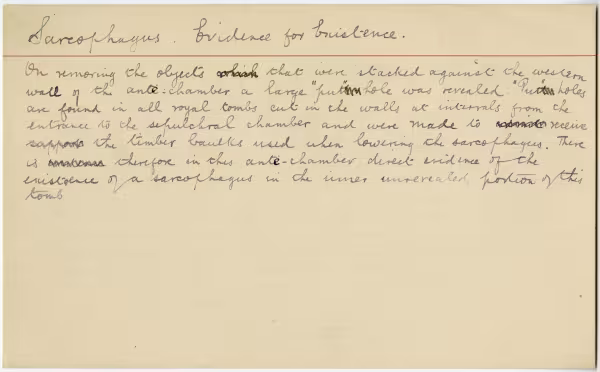 Sarcophagus. Evidence for Existence.
On removing the objects which that were stacked against the western
wall of the ante-chamber a large "put" hole was revealed. "Put" holes
are found in all royal tombs cut in the walls at intervals from the
entrance to the sepulchral chamber and were made to receive
support the timber baulks used when lowering the sarcophagus. There
is therefore in this ante-chamber direct evidence of the
existence of a sarcophagus in the inner unrevealed portion of this
tomb